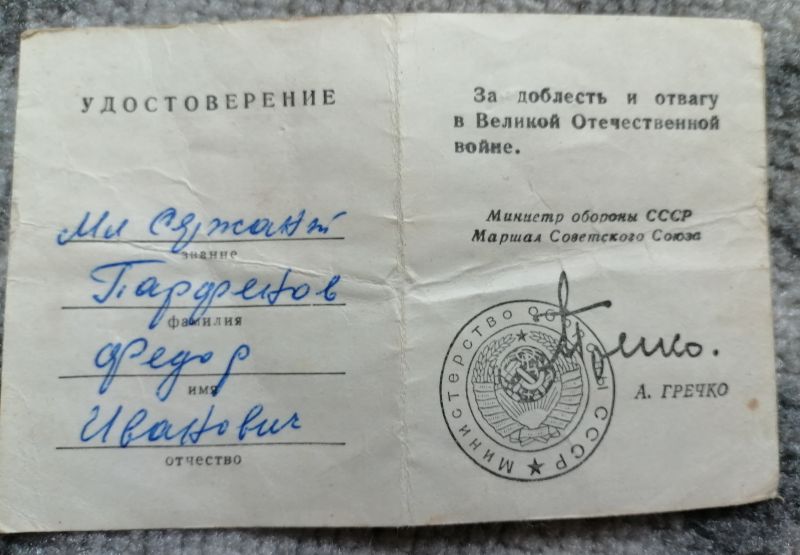 УДОСТОВЕРЕНИЕ
Мл Сержант
звание
Парфенов
фамилия
Федор
имя
Иванович
отчество
За доблесть и отвагу
в Великой Отечественной
войне.
Министр обороны СССР
Маршал Советского Союза
Гречко.
А. ГРЕЧКО
Министерство Обороны СССР